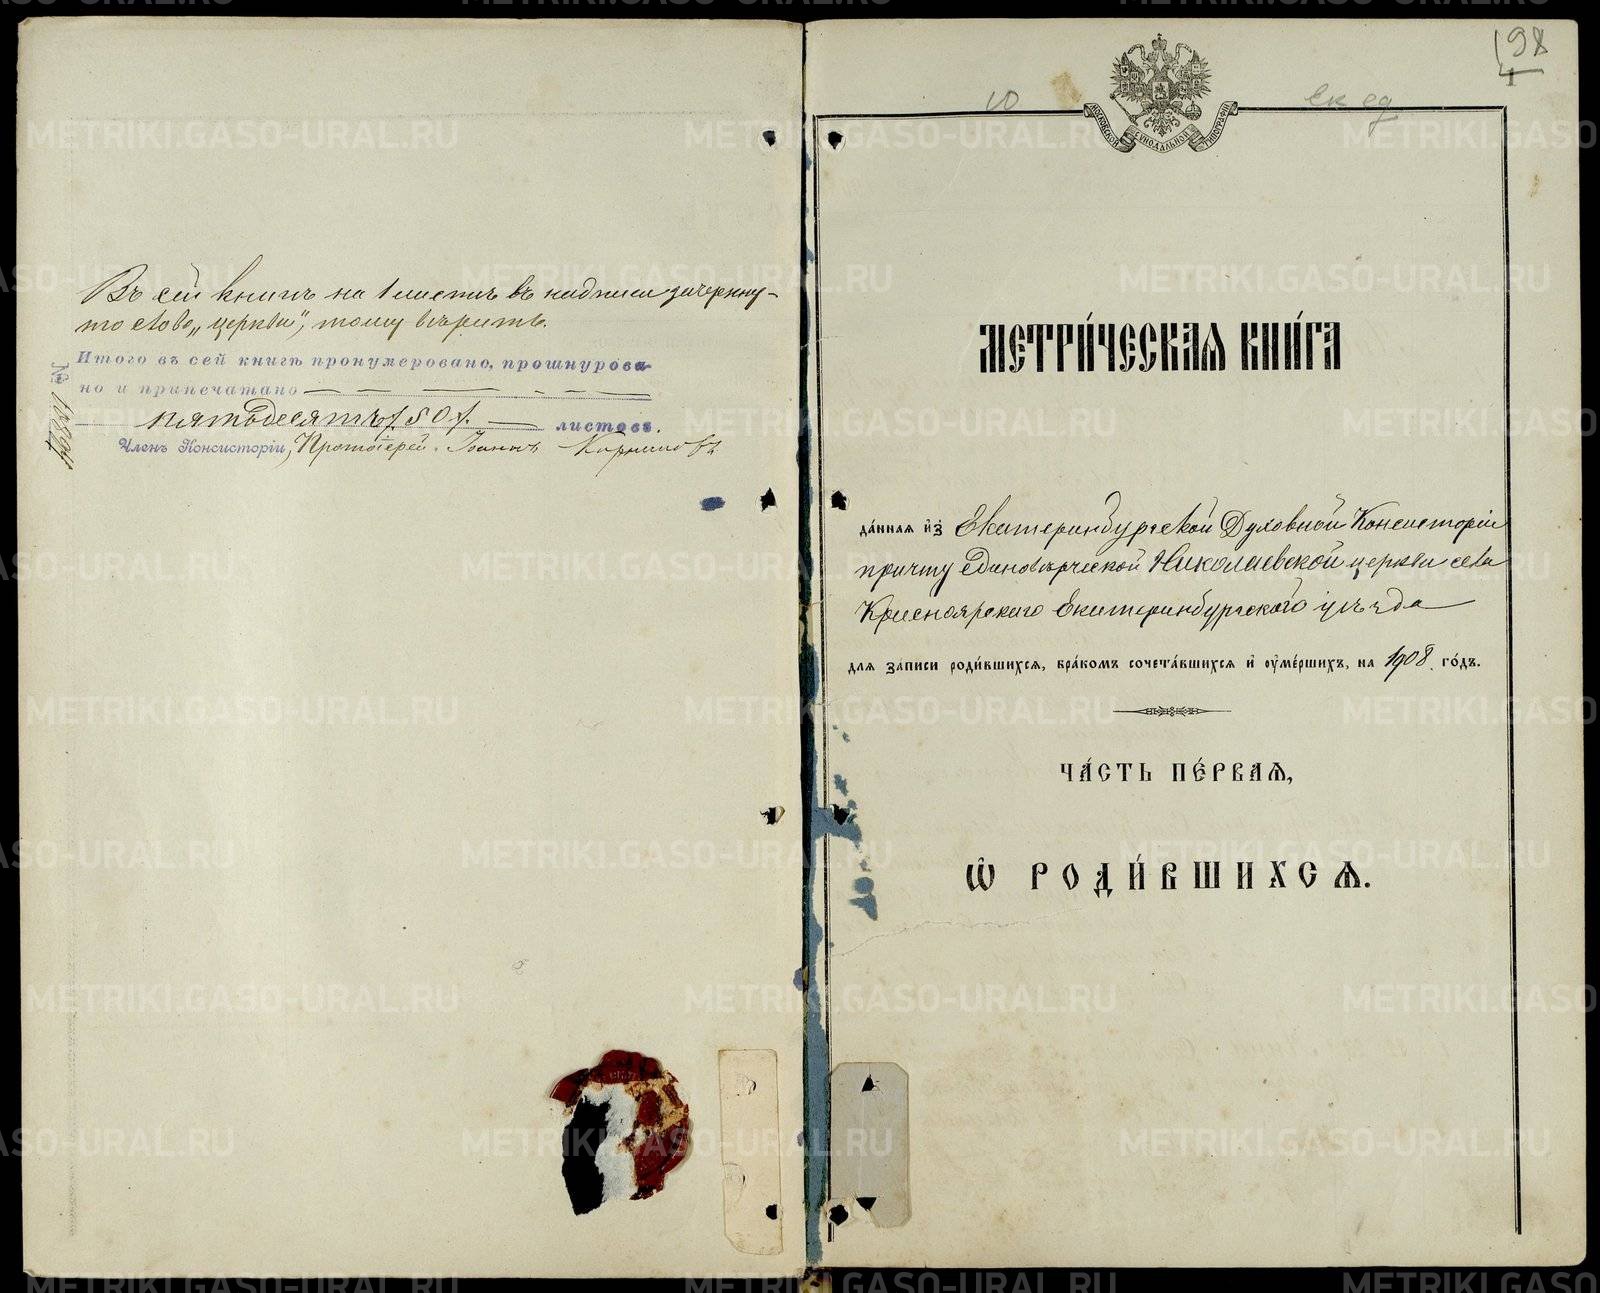 Въ сей книгѣ на 1 листѣ въ надписи зачеркну-
то слово „церкви“, тому вѣрить.
Итого въ сей книгѣ пронумеровано, прошнурова-
но и припечатано
пятьдесятъ /50/. листовъ.
Членъ Консисторіи, Протоіерей Іоаннъ
№
10
ек ед
198
МОСКОВСКОЙ СѴНОДАЛЬНОЙ ТИПОГРАФІИ
МЕТРИ́ЧЕСКАѦ КНИ́ГА
да́ннаѧ и҆з̾ Екатеринбургской Духовной Консисторіи
причту единовѣрческой Николаевской церкви села
Красноярскаго Екатеринбургскаго уѣзда
длѧ за́писи роди́вшихсѧ, бра́комъ сочета́вшихсѧ и҆ ᲂу҆ме́ршихъ, на 1908 го́дъ.
ЧА́СТЬ ПЕ́РВАѦ,
Ѡ҆ РОДИ́ВШИХСѦ.
METRIKI.GASO-URAL.RU